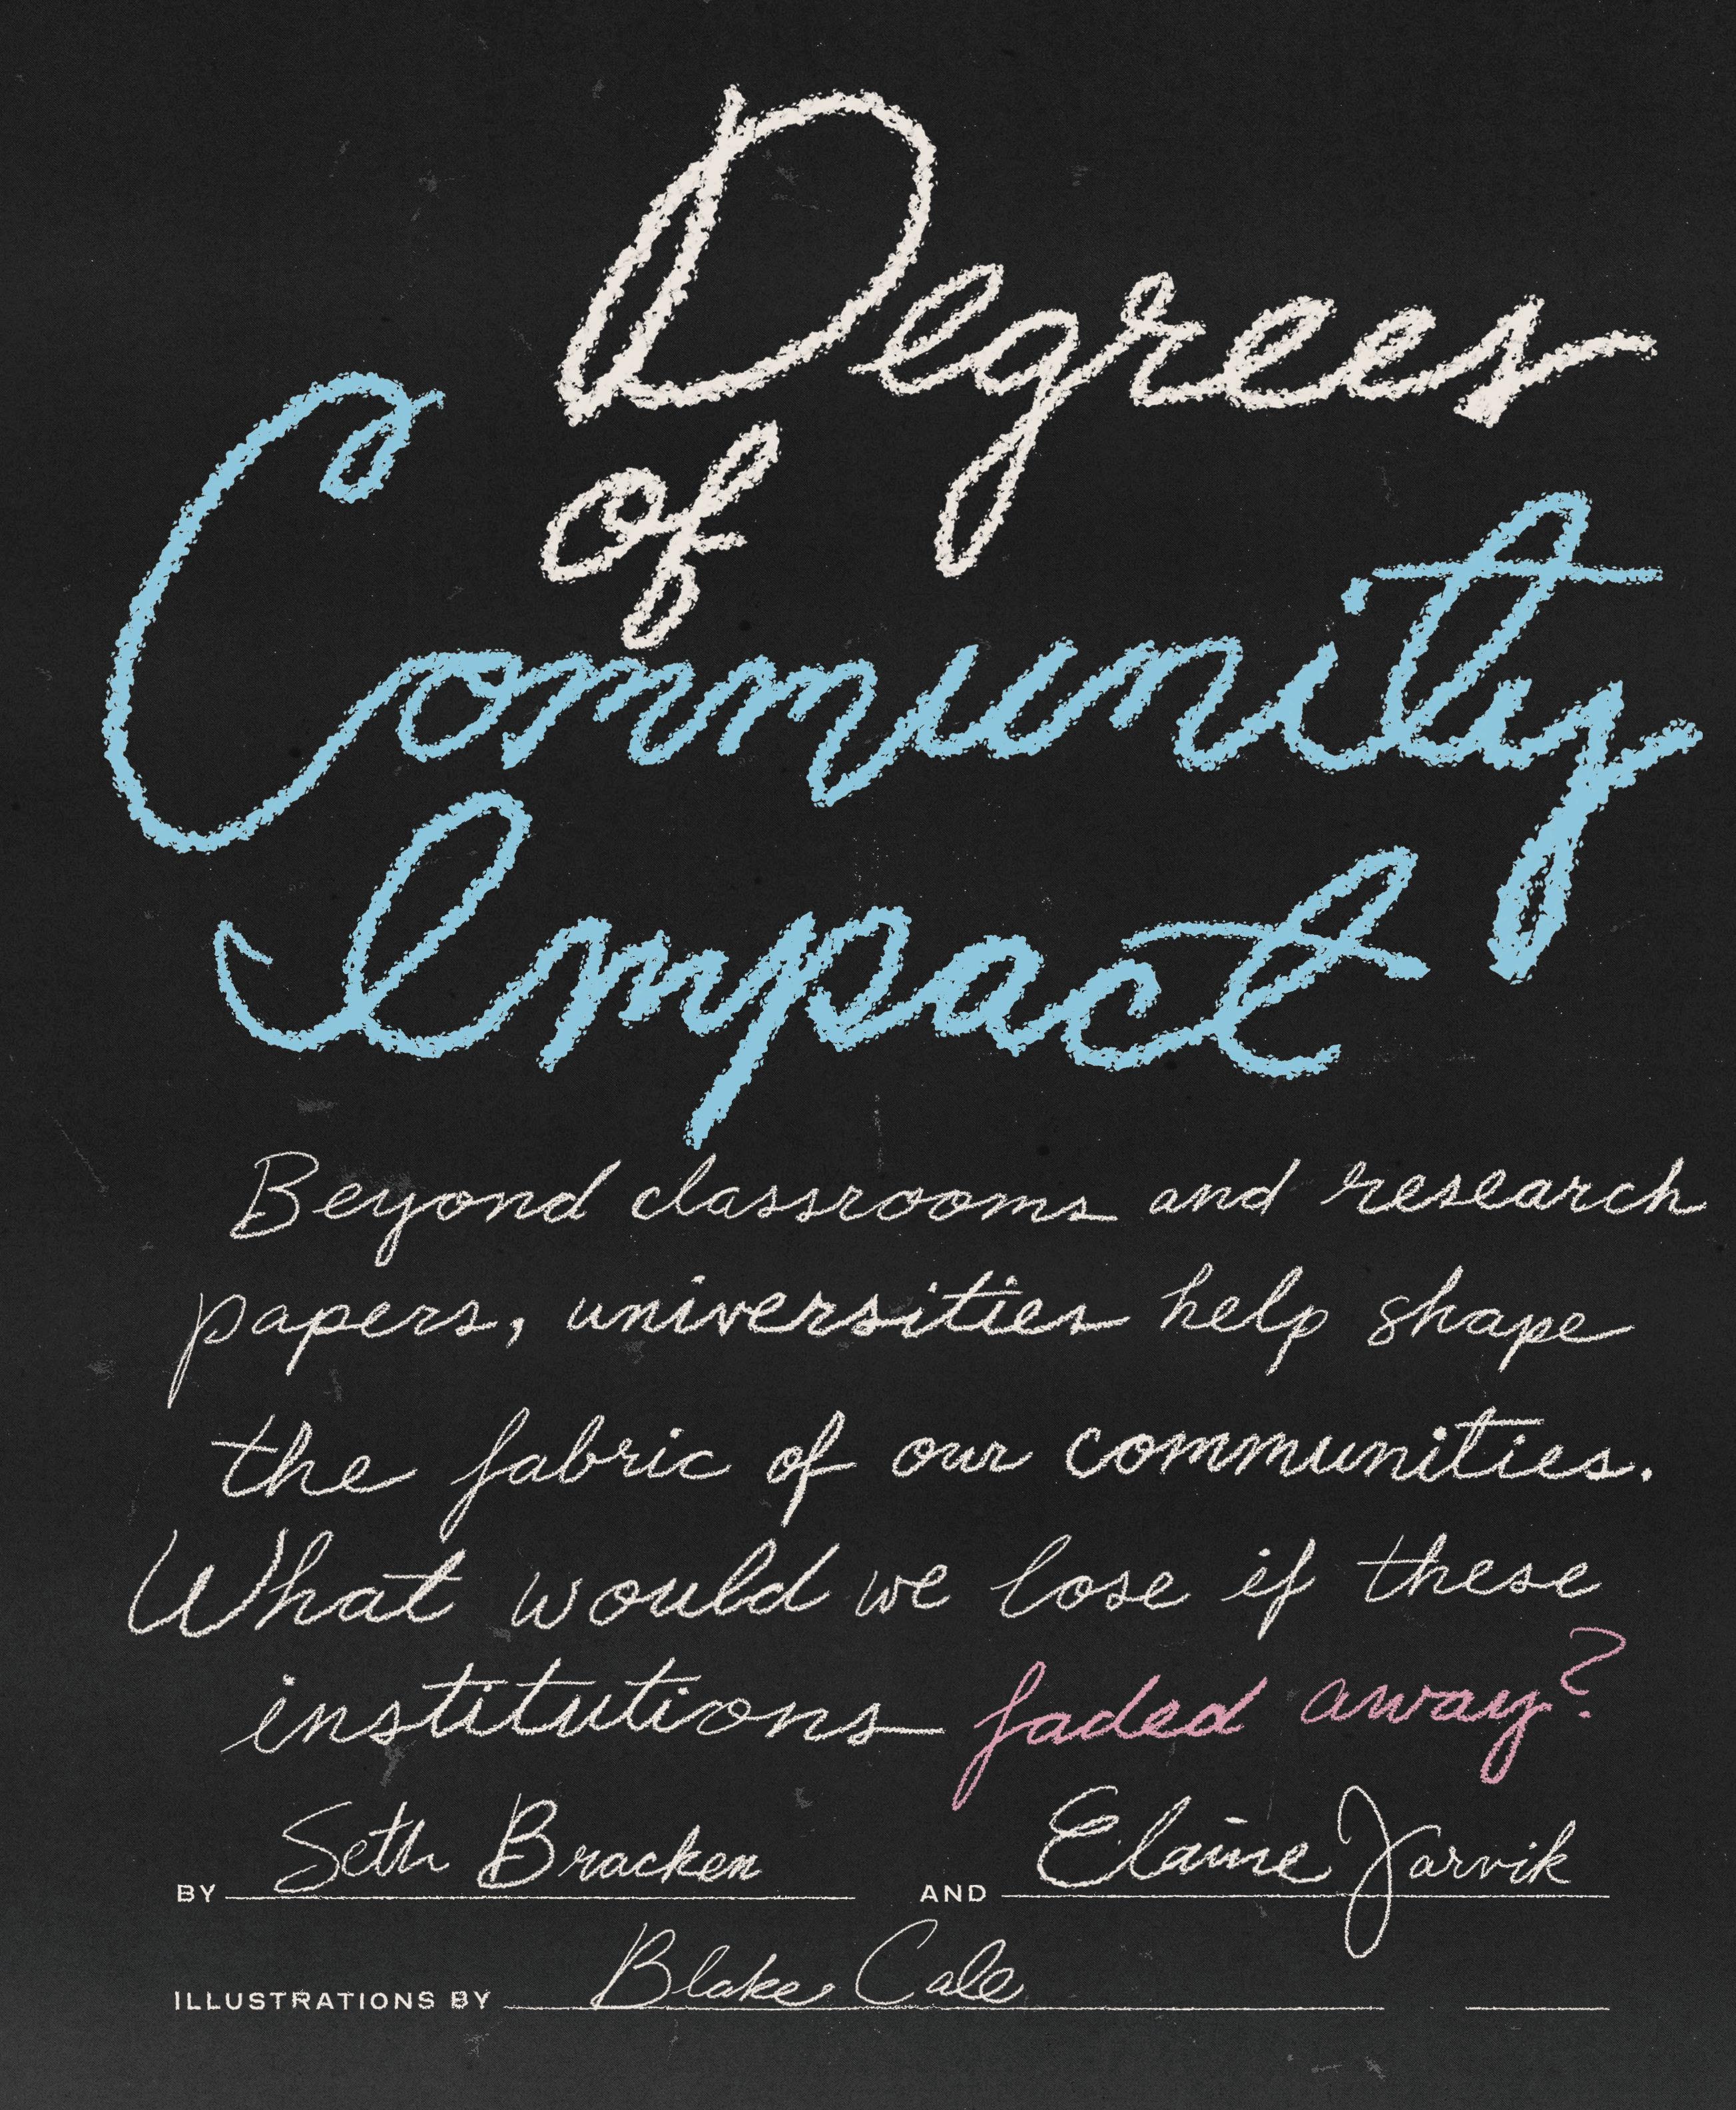 Degrees
of
Community
Impact
Beyond classrooms and research
papers, universities help shape
the fabric of our communities.
What would we lose if these
institutions faded away?
BY Seth Bracken AND Elaine Jarvik
ILLUSTRATIONS BY Blake Cale